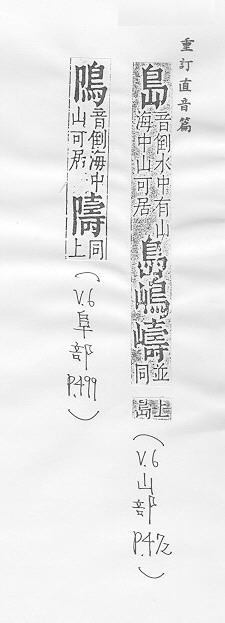 重訂直音篇
島音倒水中有山海中山可居島嶋㠀並同上島
(V.6山部P.472)
隝音倒海中山可居隯同上
(V.6阜部P.499)